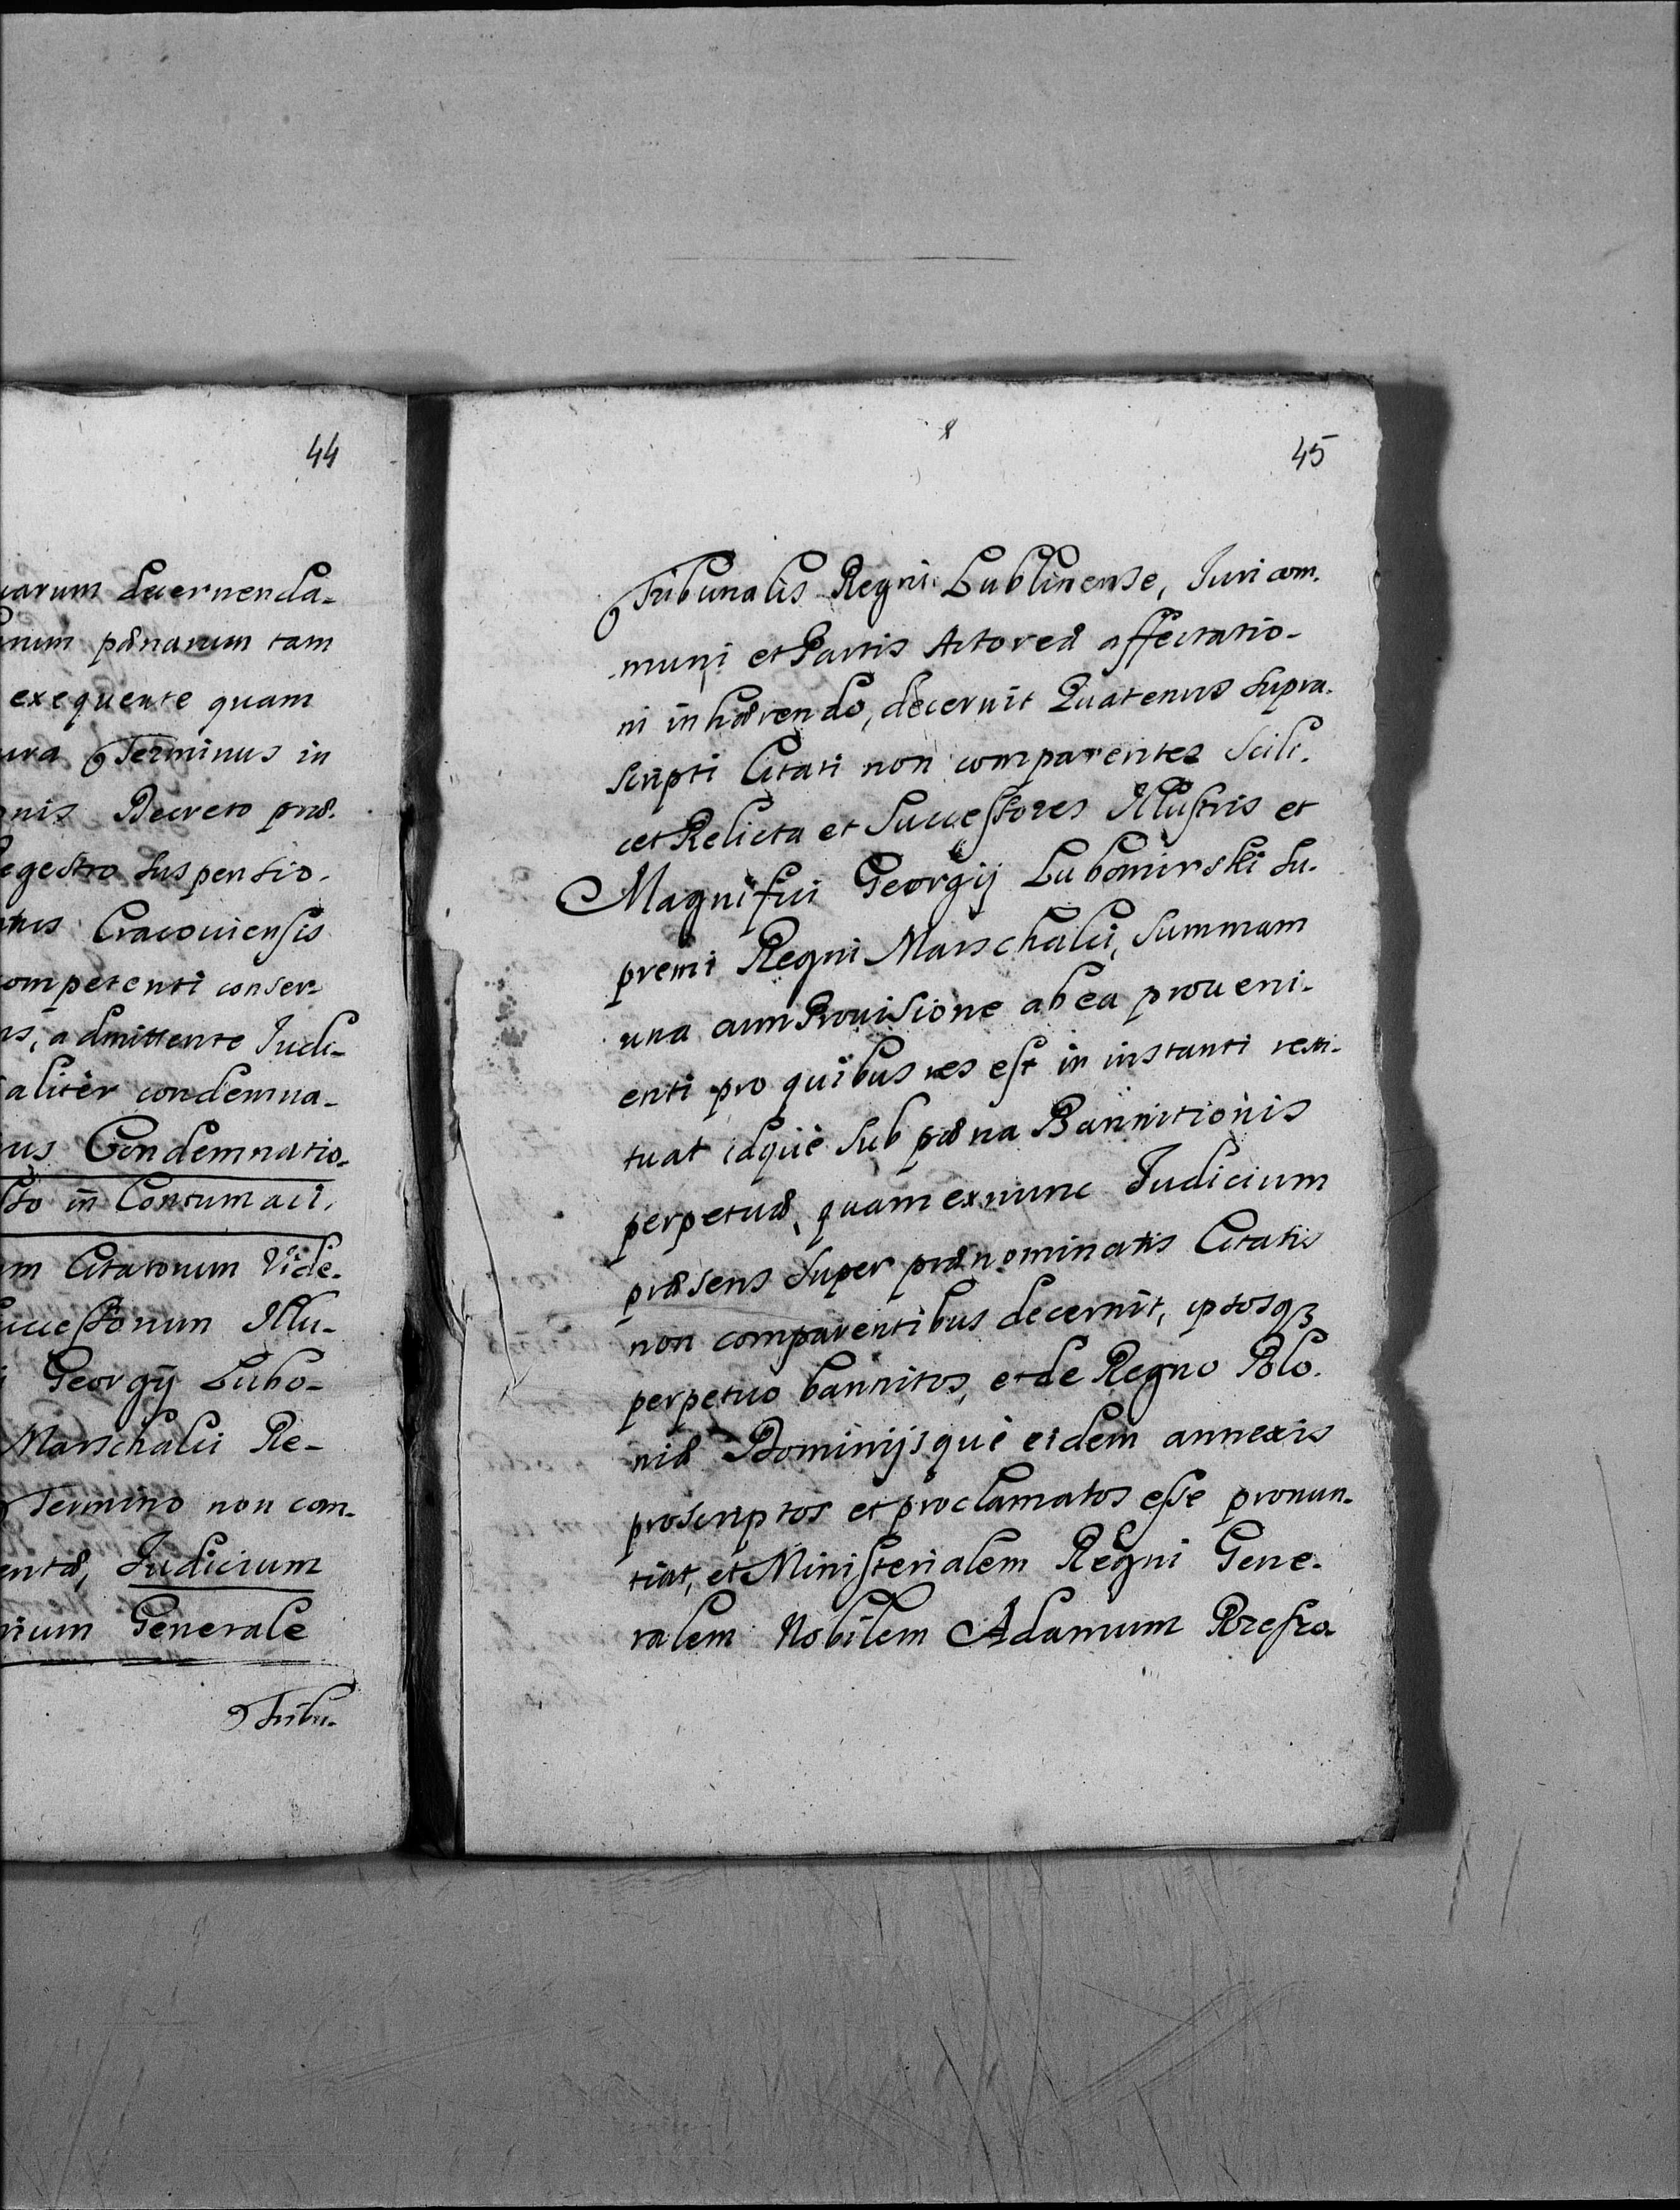 44
uarum decernenda-
pænarum tam
exequente quam
Terminus in
Decreto præ-
suspensio-
Cracouiensis
ompetenti conser-
admittente Judi-
aliter condemna-
us Condemnatio-
in Contumaci.
Citatorum Vide-
uccessorum Illu-
Georgij Lubo-
Marschalci Re-
Termino non com-
Judicium
Generale
Tribu-
45
Tribunalis Regni Lublinense, Juri com-
muni et Partis Actoreæ affectatio-
ni inhærendo, decernit Quatenus supra-
scripti Citati non comparentes Scili-
cet Relicta et Successores Illustris et
Magnifici Georgij Lubomirski Su-
premi Regni Marschalci, Summam
una cum Prouisione ab ea proueni-
enti pro quibus res est in instanti resti-
tuat idquè sub pæna Bannitionis
perpetuæ, quam exnunc Judicium
præsens super prænominatis Citatis
non comparentibus decernit, iptosq3
perpetuo bannitos, et de Regno Polo-
niæ Dominijsquè eidem annexis
proscriptos et proclamatos esse pronun-
tiat, et Ministerialem Regni Gene-
ralem Nobilem Adamum